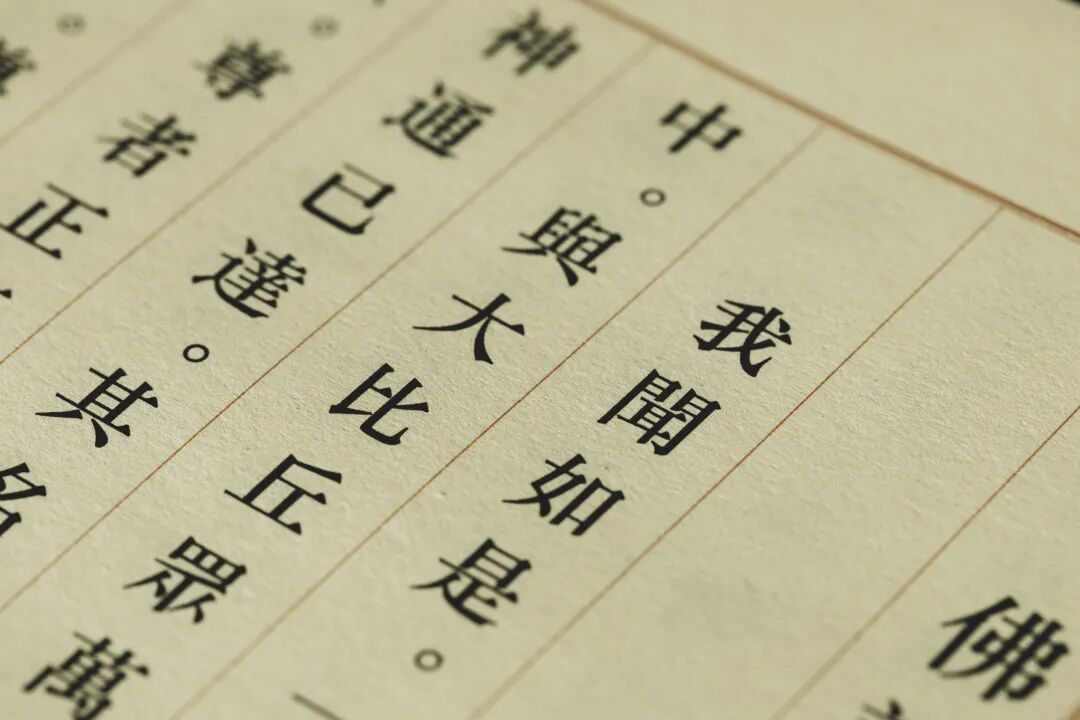 佛
我聞如是。一
中。與大比丘眾萬
神通已達。其名
。尊者正
。尊